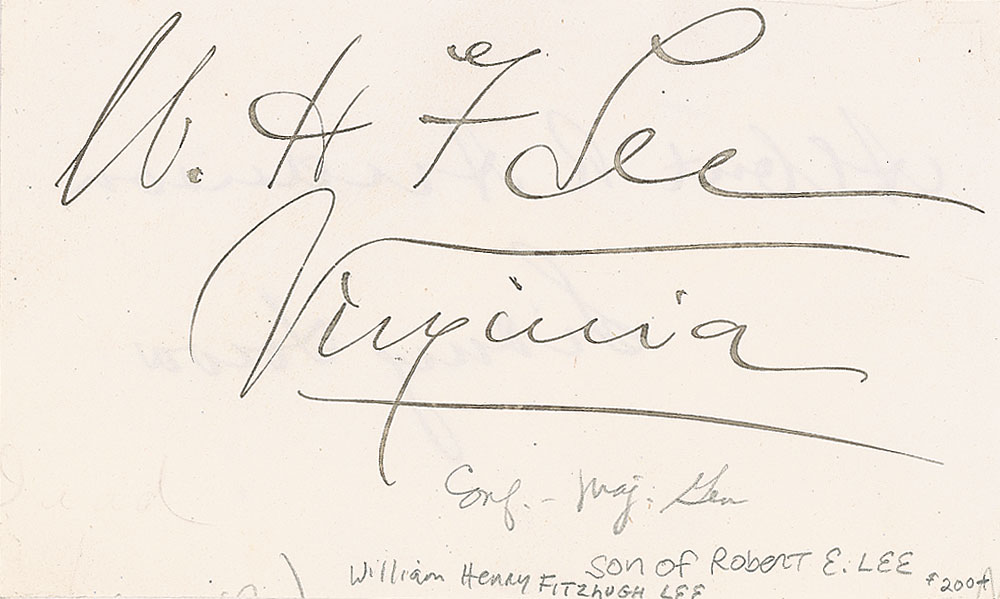 W. H F Lee
Virginia
Conf. - Maj. Gen
son of Robert E. LEE
William Henry FITZHUGH LEE